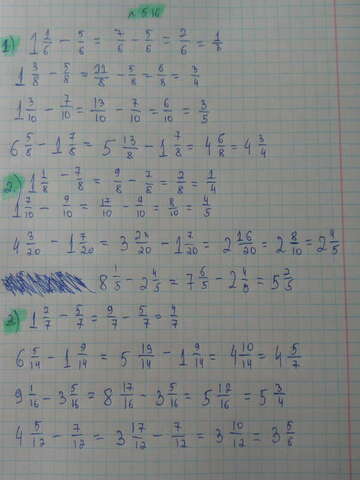 № 516
1) 1 1/6 - 5/6 = 7/6 - 5/6 = 2/6 = 1/3
1 3/8 - 5/8 = 11/8 - 5/8 = 6/8 = 3/4
1 3/10 - 7/10 = 13/10 - 7/10 = 6/10 = 3/5
6 5/8 - 1 7/8 = 5 13/8 - 1 7/8 = 4 6/8 = 4 3/4
2) 1 1/8 - 7/8 = 9/8 - 7/8 = 2/8 = 1/4
1 7/10 - 9/10 = 17/10 - 9/10 = 8/10 = 4/5
4 3/20 - 1 7/20 = 3 23/20 - 1 7/20 = 2 16/20 = 2 8/10 = 2 4/5
8 1/5 - 2 4/5 = 7 6/5 - 2 4/5 = 5 2/5
3) 1 2/7 - 5/7 = 9/7 - 5/7 = 4/7
6 5/14 - 1 9/14 = 5 19/14 - 1 9/14 = 4 10/14 = 4 5/7
9 1/16 - 3 5/16 = 8 17/16 - 3 5/16 = 5 12/16 = 5 3/4
4 5/12 - 7/12 = 3 17/12 - 7/12 = 3 10/12 = 3 5/6